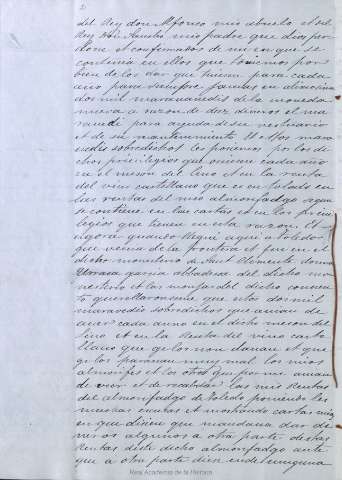 2
del Rey don Alfonso mio abuelo et del
Rey don Sancho mio padre que dios per-
done et confirmados de mi en que se
contenia en ellos que touiemos por
bien de los dar que hiciesen para cada
año para siempre jamas en limosna
dos mil maravedis de la moneda
nueva a razon de diez dineros el ma-
ravedi para ayuda de su vestuario
et de su mantenimiento et estos mara-
vedis sobredichos les ponemos por los di-
chos privilegios que oviesen cada año
en el meson del lino et en la renta
del vino castellano que es en toledo en
las rentas del mio almonjadgo segun
se contiene en las cartas et en los previ-
legios que tienen en esta razon. Et
agora quando llegué aqui a toledo
que venia de la frontera et fue en el
dicho monesterio de Sant Clemente donna
garcia abbadesa del dicho mo-
nesterio et las monjas del dicho conven-
to querellaronseme que estos dos mil
maravedis sobredichos que avian de
aver cada anno en el dicho meson del
lino et en la Renta del vino caste-
llano que ge los non davan et que
ge los paravan muy mal los mios
almojarifes et los otros que por mi avian
de ver et de recabdar las mis Rentas
del almonjadgo de toledo poniendo les
muchas escusas et mostrando cartas mias
en que dicen que mandava dar di-
neros algunos a otra parte destas
Rentas deste dicho almonjadgo ante
que a otra parte den ende ninguna
Real Academia de la Historia